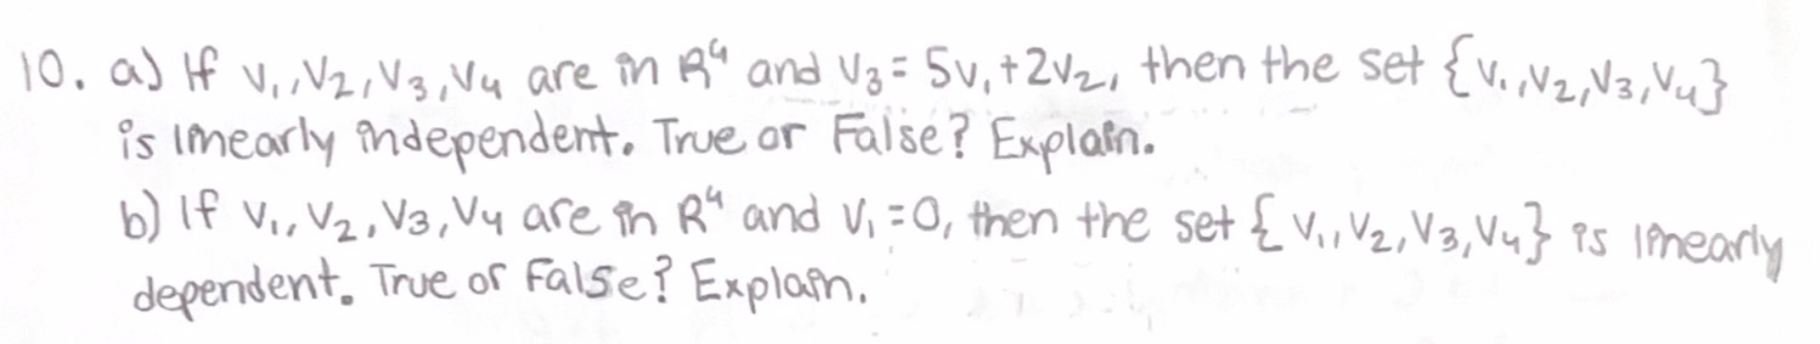 10. a) If v₁, v₂, v₃, v₄ are in R⁴ and v₃ = 5v₁ + 2v₂, then the set {v₁, v₂, v₃, v₄}
is linearly independent. True or False? Explain.
b) If v₁, v₂, v₃, v₄ are in R⁴ and v₁ = 0, then the set {v₁, v₂, v₃, v₄} is linearly
dependent. True or False? Explain.